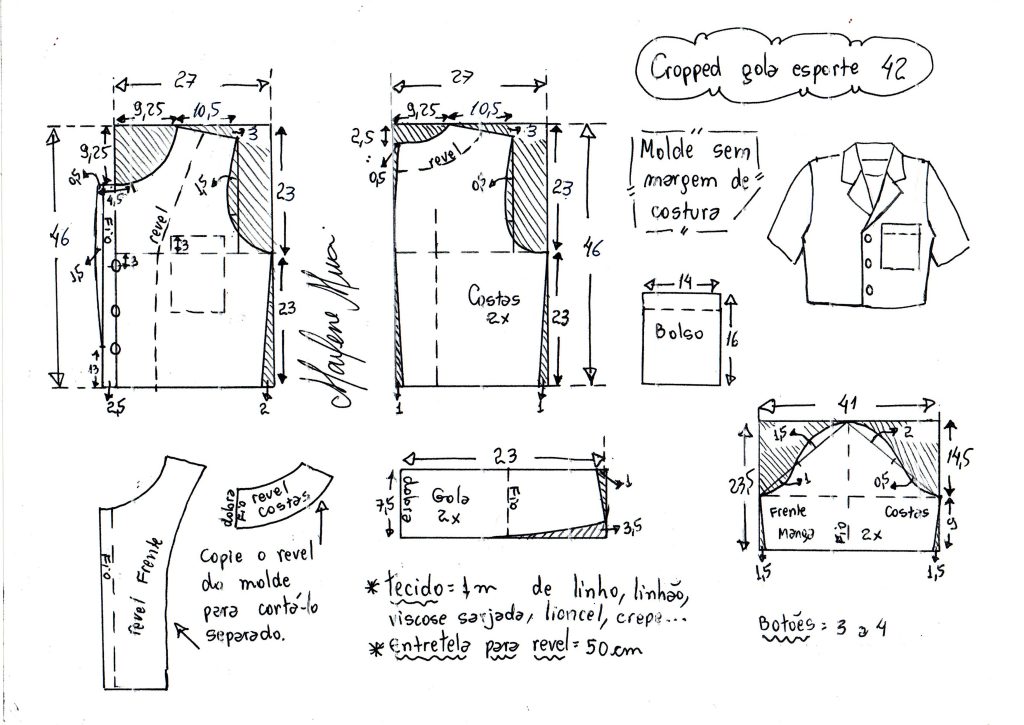 Cropped gola esporte 42
Molde sem
margem de
costura
27
9,25
10,5
3
9,25
0,5
4,5
1,5
Fio
revel
23
46
3
3
1,5
23
13
2,5
2
Marlene Mukai
27
9,25
10,5
2,5
3
revel
0,5
0,5
23
46
Costas
2x
23
1
1
14
Bolso
16
41
1,5
2
23,5
14,5
1
0,5
Frente
Costas
Manga
Fio
2x
9
1,5
1,5
23
7,5
dobra
Gola
2x
Fio
1
3,5
Fio
revel Frente
dobra
Fio
revel
costas
Copie o revel
do molde
para cortá-lo
separado.
* Tecido = 1m de linho, linhão,
viscose sarjada, lioncel, crepe...
* Entretela para revel = 50cm
Botões = 3 a 4